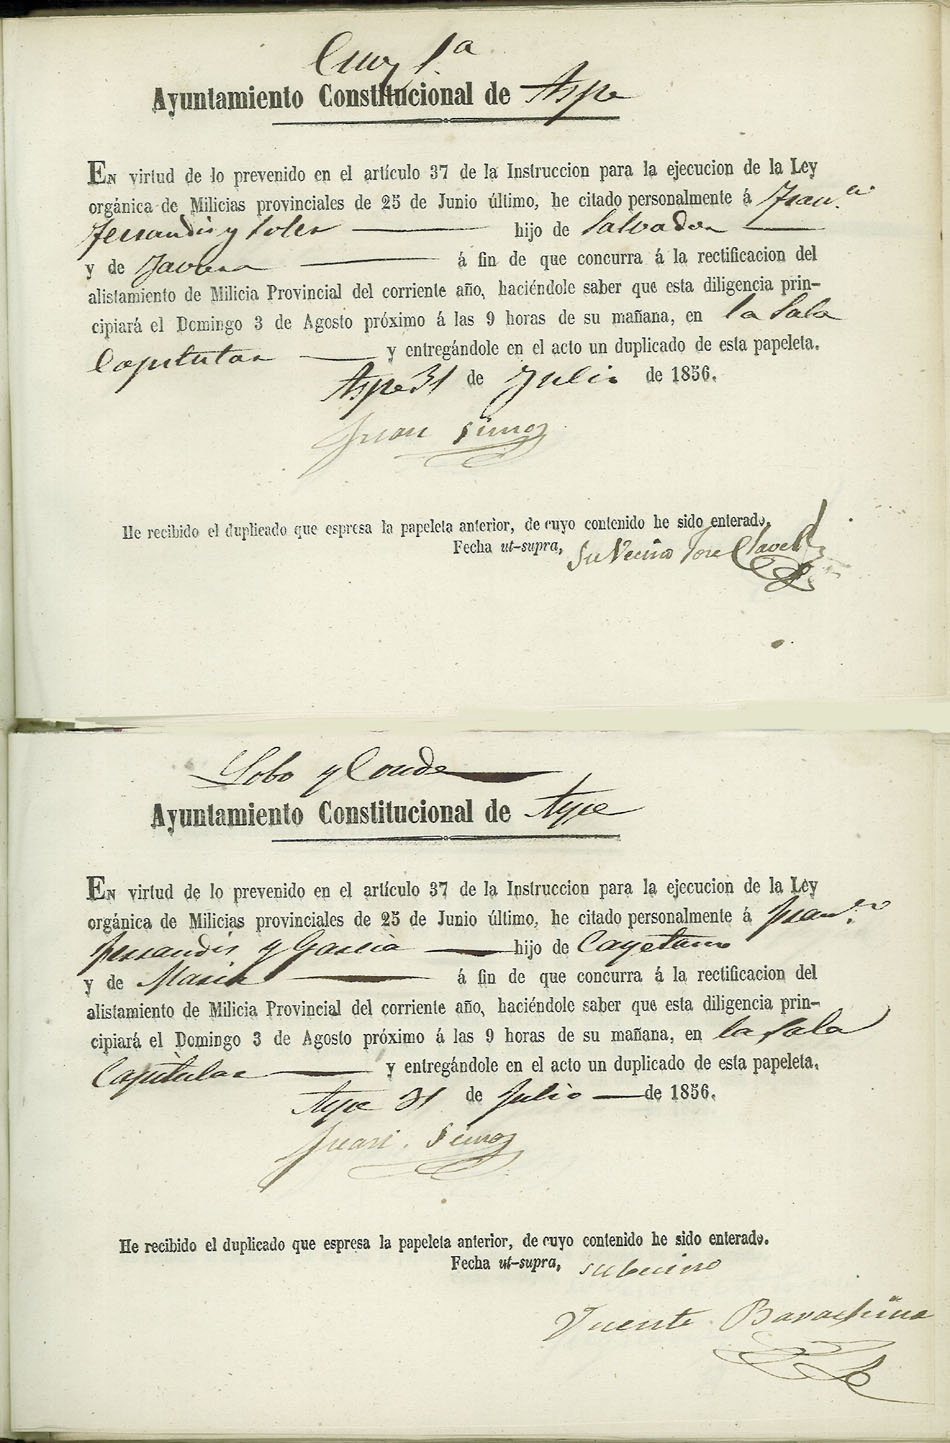 Cruz 1ª
Ayuntamiento Constitucional de Aspe
EN virtud de lo prevenido en el artículo 37 de la Instruccion para la ejecucion de la Ley
orgánica de Milicias provinciales de 25 de Junio último, he citado personalmente á Fran.co
Ferrandis y Soler hijo de Salvador
y de Javiera á fin de que concurra á la rectificacion del
alistamiento de Milicia Provincial del corriente año, haciéndole saber que esta diligencia prin-
cipiará el Domingo 3 de Agosto próximo á las 9 horas de su mañana, en la Sala
Capitular y entregándole en el acto un duplicado de esta papeleta.
Aspe 31 de Julio de 1856.
Juan
He recibido el duplicado que espresa la papeleta anterior, de cuyo contenido he sido enterado.
Fecha ut-supra, Su Vecino Jose
Lobo y Conde
Ayuntamiento Constitucional de Aspe
EN virtud de lo prevenido en el artículo 37 de la Instruccion para la ejecucion de la Ley
orgánica de Milicias provinciales de 25 de Junio último, he citado personalmente á Fran.co
Ferrandis y Garcia hijo de Cayetano
y de Maria á fin de que concurra á la rectificacion del
alistamiento de Milicia Provincial del corriente año, haciéndole saber que esta diligencia prin-
cipiará el Domingo 3 de Agosto próximo á las 9 horas de su mañana, en la Sala
Capitular y entregándole en el acto un duplicado de esta papeleta.
Aspe 31 de Julio de 1856.
Juan
He recibido el duplicado que espresa la papeleta anterior, de cuyo contenido he sido enterado.
Fecha ut-supra, su becino